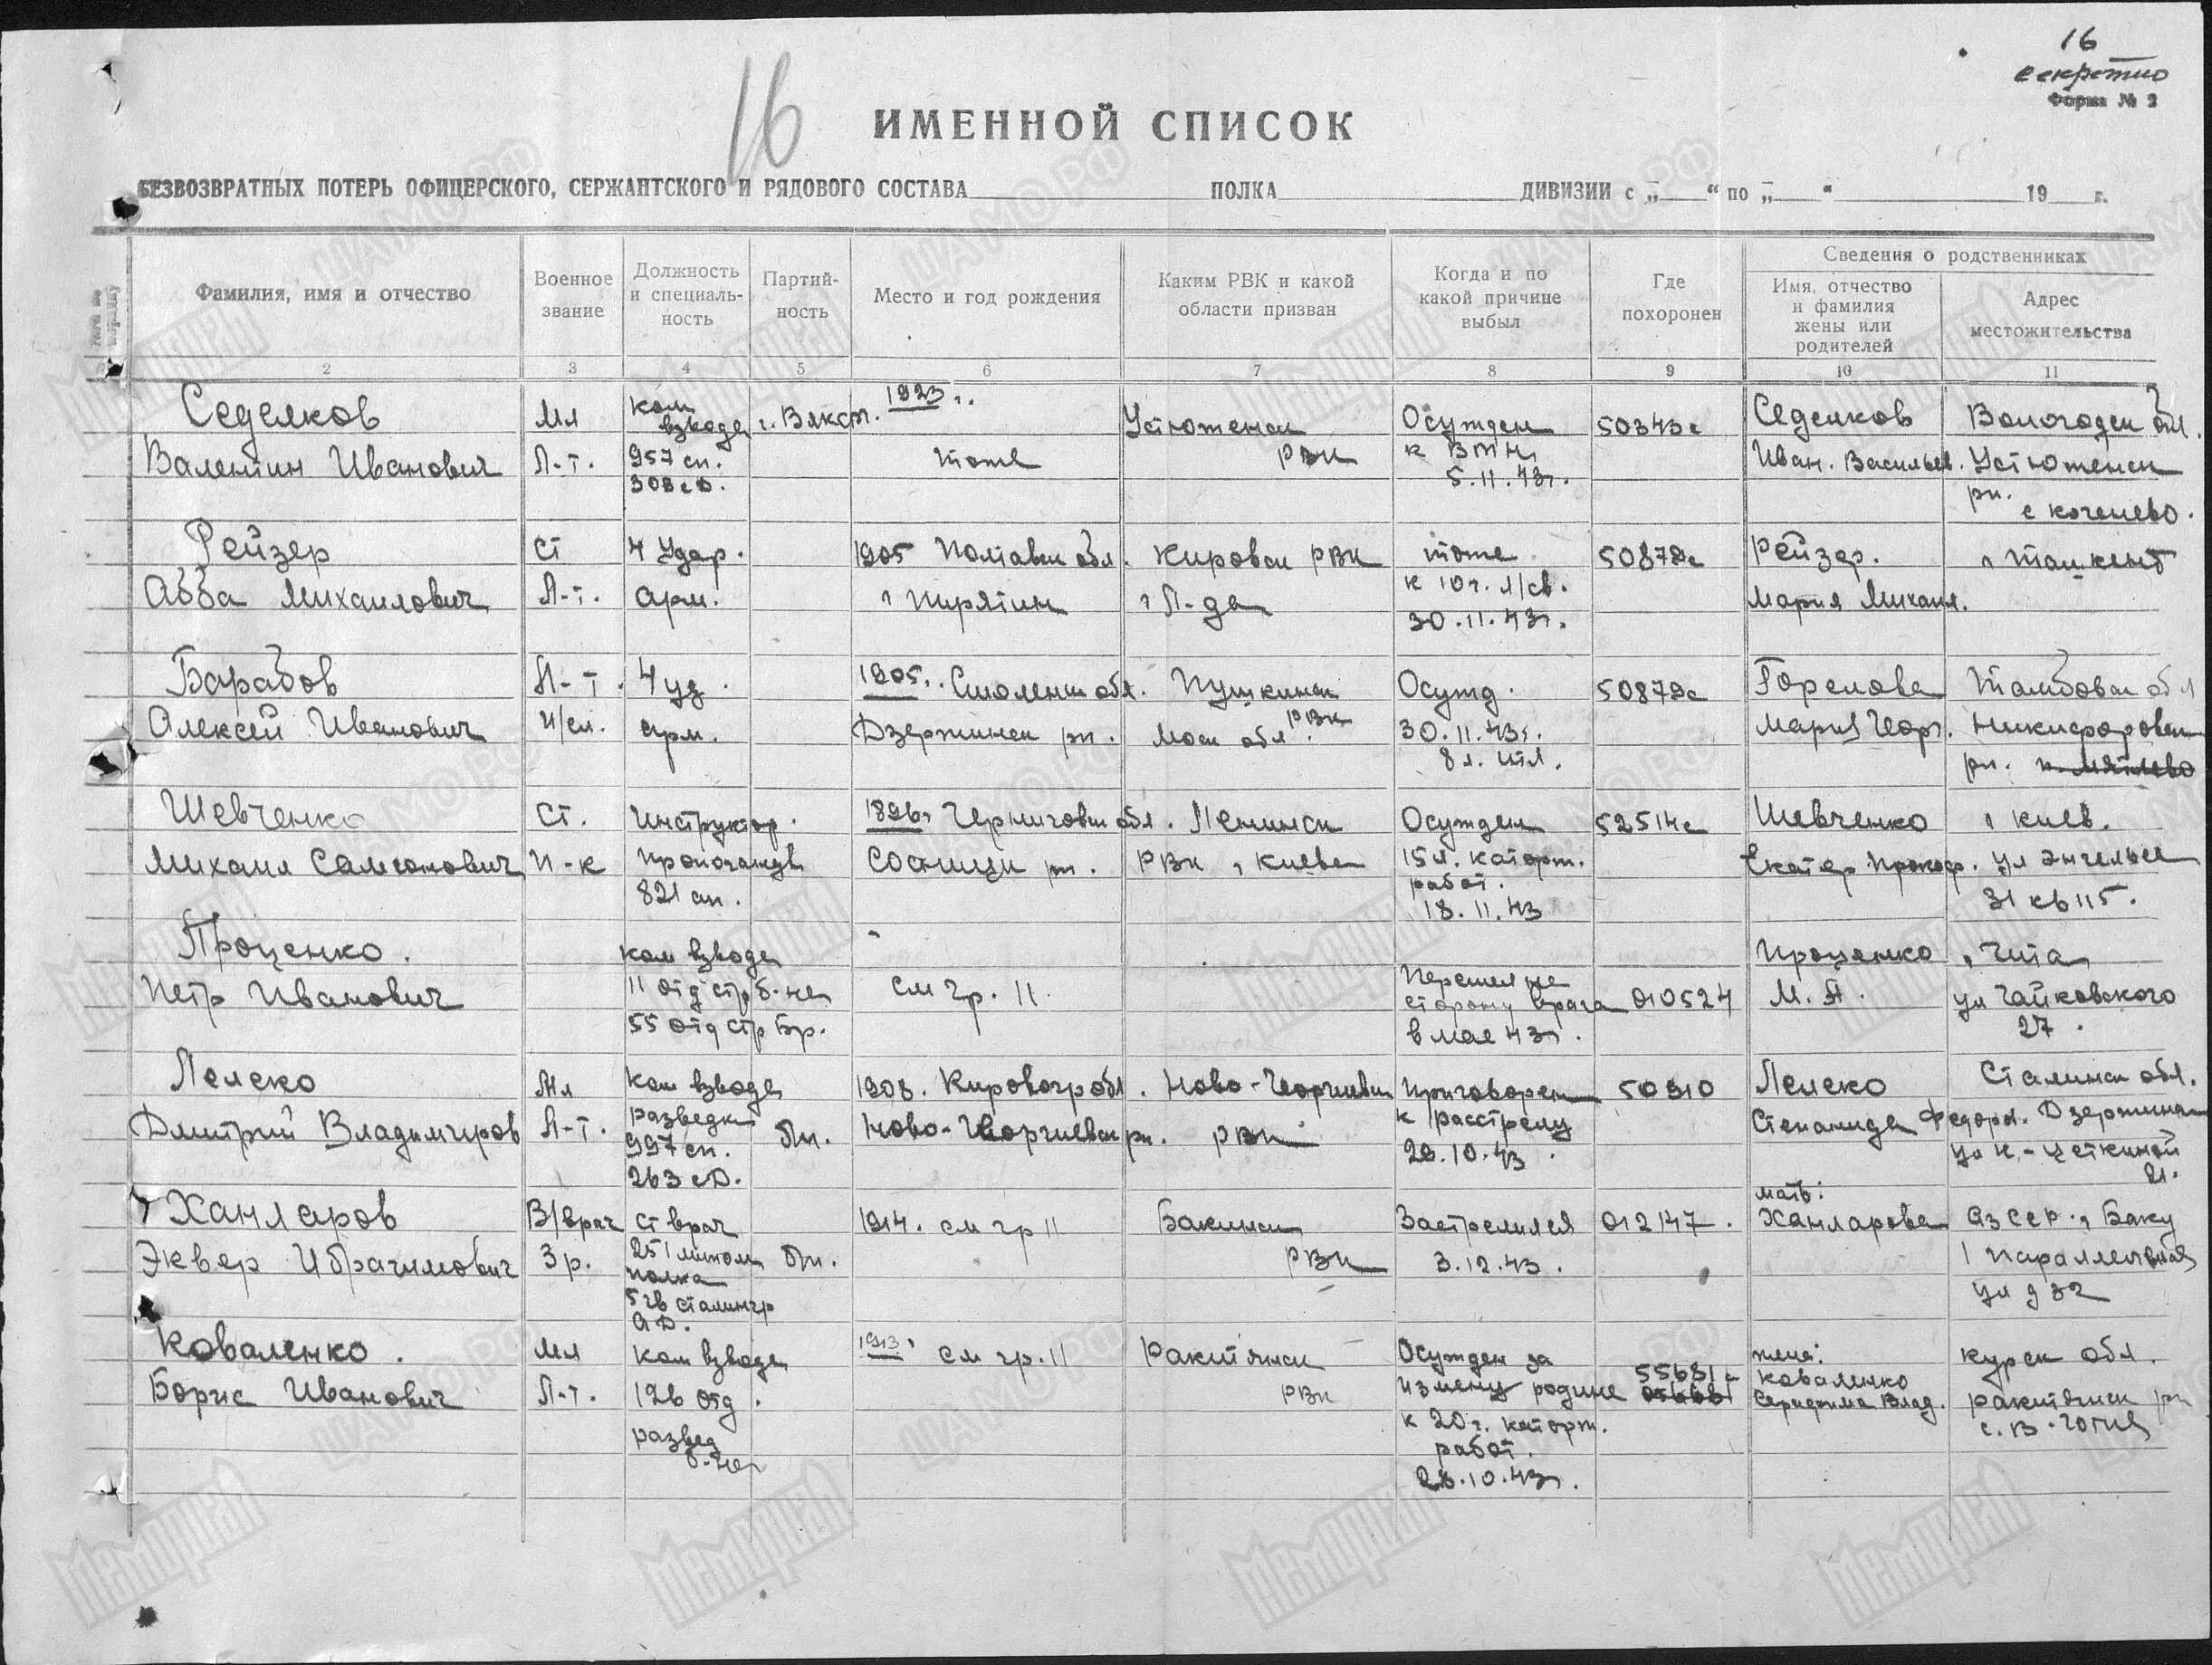 16
секретно
Форма № 2
16
ИМЕННОЙ СПИСОК
БЕЗВОЗВРАТНЫХ ПОТЕРЬ ОФИЦЕРСКОГО, СЕРЖАНТСКОГО И РЯДОВОГО СОСТАВА ПОЛКА ДИВИЗИИ с „ “ по „ “ 19 г.
Фамилия, имя и отчество
Военное звание
Должность и специальность
Партийность
Место и год рождения
Каким РВК и какой области призван
Когда и по какой причине выбыл
Где похоронен
Сведения о родственниках
Имя, отчество и фамилия жены или родителей
Адрес местожительства
2 3 4 5 6 7 8 9 10 11
Седелков Мл ком взвода 1923 г. Устюженск Осужден 50343с Седелков Вологодск обл.
Валентин Иванович Л-т. 957 сп. тоже РВК к ВМН Иван. Васильев. Устюженск
308 сд. 5.11.43г. рн.
с коченево.
Рейзер Ст 4 Удар. 1905 Полтавск обл. Кировск РВК тоже 50879с Рейзер. г Ташкент
Абба Михаилович Л-т. арм. г Пирятин г Л-да к 10 г. л/св. Мария Михаил.
30.11.43г.
Барабов Л-т. 4 уд. 1905г. Смоленск обл. Пушкинск Осужд. 50879с Горелова Тамбовск обл
Алексей Иванович И/сл. арм. Дзержинск рн. Моск обл РВК. 30.11.43г. Мария Геор. Никифоровск
8 л. итл. рн.
Шевченко Ст. Инструктор. 1896г Черниговск обл. Ленинск Осужден 52514с Шевченко г Киев.
Михаил Самсонович П-к пропоганды Сосницк рн. РВК г Киева 15 л. каторж. Екатер Прокоф. ул Энгельса
821 ап. работ. 31 кв 115.
18.11.43
Проценко. ком взвода Проценко г Чита
Петр Иванович 11 отд стр б-на см гр. 11. Перешел на сторону врага 010524 М. А. ул Чайковского
55 отд стр бр. в мае 43г. 27.
Лелеко Мл Ком взвода 1908. Кировогр обл. Ново-Георгиевск Приговорен 50910 Лелеко Сталинск обл.
Дмитрий Владимиров Л-т. разведки бп. Ново-Георгиевск рн. РВК к расстрелу Степанида Федоров. Дзержинск
997 сп. 29.10.43. ул К-Цеткиной
263 сд. 21.
мать:
Ханларов В/врач ст врач 1914. см гр 11 Бакинск Застрелился 012147. Ханларова Аз ССР. г Баку
Эквер Ибрагимович 3 р. 251 мином бп. РВК 3.12.43. 1 Параллельная
полка ул д 32
5 гв сталингр
А Д.
Коваленко. мл ком взвода 1913г см гр. 11 Ракитянск Осужден за жена: Курск обл.
Борис Иванович Л-т. 126 отд. РВК измену родине 55681с Коваленко
к 20 г. каторж. Серафима Влад. Ракитянск рн
развед работ. с. В-Готня
б-на 28.10.43г.